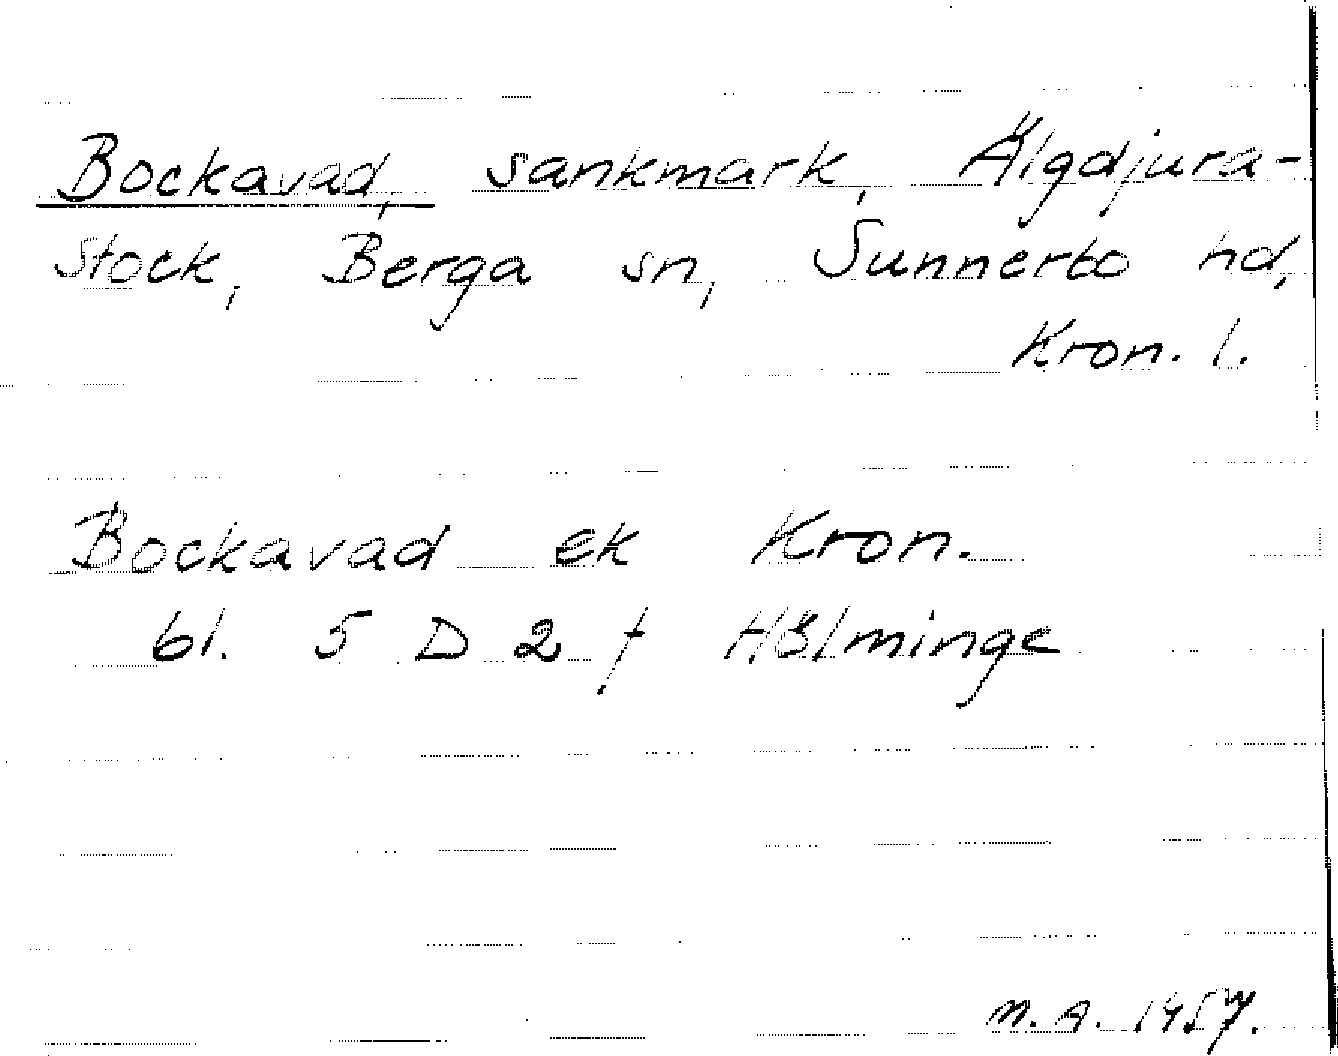 Bockavad, sankmark, Älgdjura-
stock, Berga sn, Sunnerbo hd,
Kron. l.
Bockavad ek Kron.
bl. 5 D 2 f Hölminge
n. A. 1957.